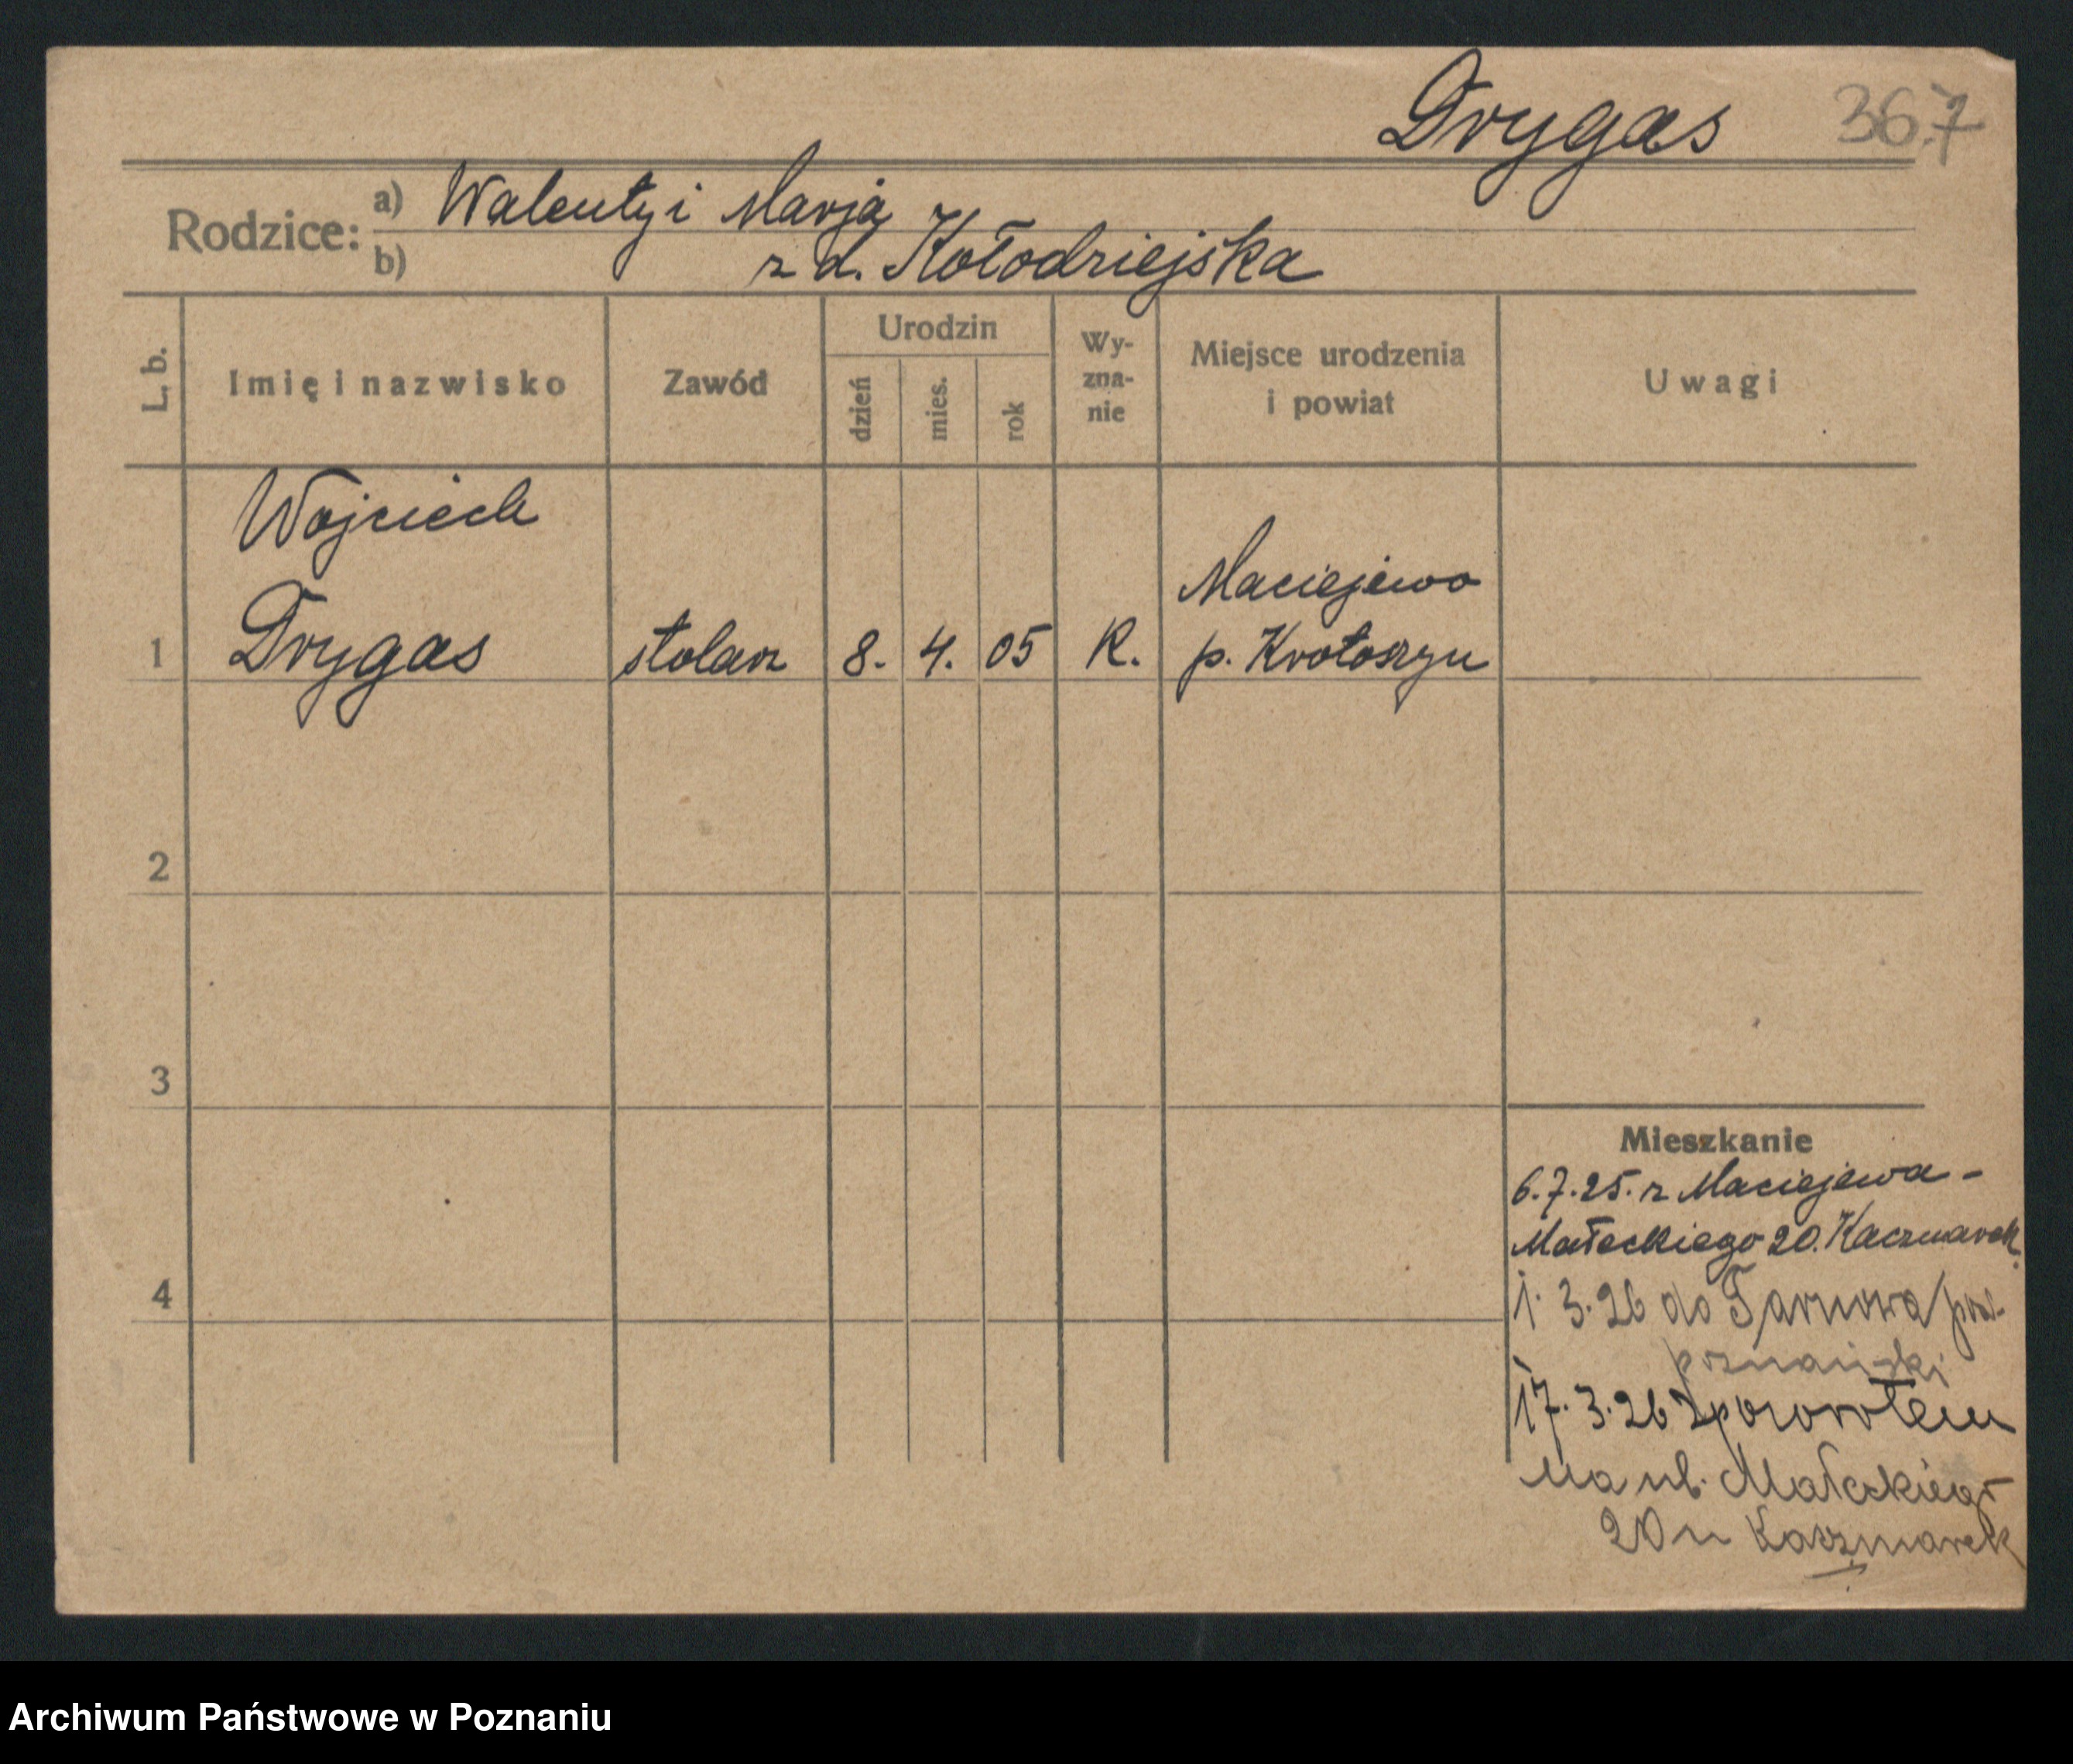 Drygas 367
Rodzice: a) Walenty i Marja
b) z d. Kołodziejska
L. b.
Imię i nazwisko
Zawód
Urodzin
dzień
mies.
rok
Wy-
zna-
nie
Miejsce urodzenia
i powiat
Uwagi
Wojciech
Maciejewo
1 Drygas stolarz 8. 4. 05 K. p. Krotoszyn
2
3
Mieszkanie
6.7.25. z Maciejewa -
Małeckiego 20. Kaczmarek.
4
1. 3.26 do Tarnowa pow.
poznański
17. 3.26 Zpowrotem
na ul. Małeckiego
20 u Kaczmarek
Archiwum Państwowe w Poznaniu